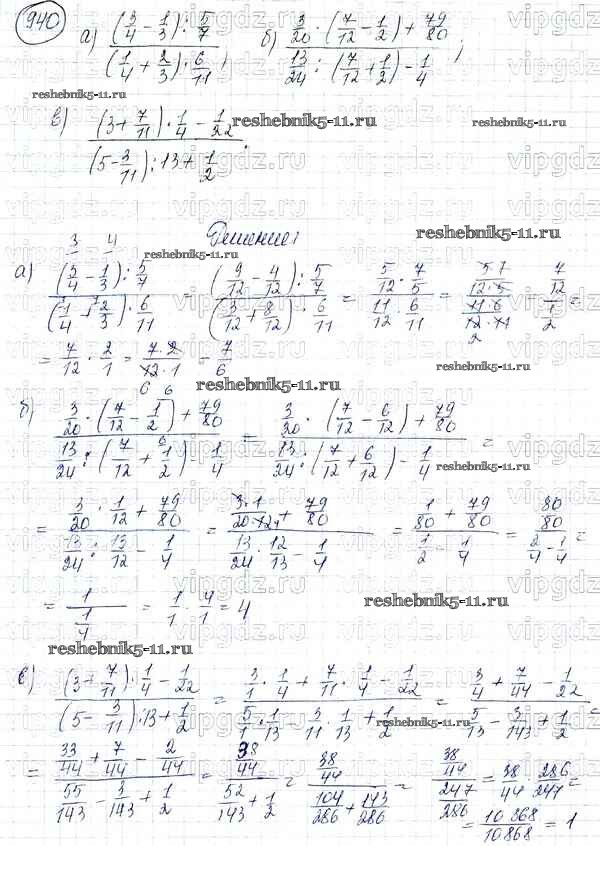 940 а) ((3/4 - 1/3) : 5/7) / ((1/4 + 2/3) · 6/11) ; б) (3/20 : (7/12 - 1/2) + 79/80) / (13/24 : (7/12 + 1/2) - 1/4) ;
reshebnik5-11.ru
в) ((3 + 7/11) · 1/4 - 1/22) / ((5 - 3/11) : 13 + 1/2) .
reshebnik5-11.ru
Решение:
reshebnik5-11.ru
reshebnik5-11.ru
а) ((3/4 - 1/3) : 5/7) / ((1/4 + 2/3) · 6/11) = ((9/12 - 4/12) : 5/7) / ((3/12 + 8/12) · 6/11) = (5/12 · 7/5) / (11/12 · 6/11) = (5·7 / 12·5) / (11·6 / 12·11) = (7/12) / (1/2) =
= 7/12 · 2/1 = 7·2 / 12·1 = 7/6
reshebnik5-11.ru
б) (3/20 · (7/12 - 1/2) + 79/80) / (13/24 : (7/12 + 1/2) - 1/4) = (3/20 · (7/12 - 6/12) + 79/80) / (13/24 : (7/12 + 6/12) - 1/4) =
reshebnik5-11.ru
= (3/20 · 1/12 + 79/80) / (13/24 : 13/12 - 1/4) = (3·1 / 20·12 + 79/80) / (13/24 · 12/13 - 1/4) = (1/80 + 79/80) / (1/2 - 1/4) = (80/80) / (2/4 - 1/4) =
= 1 / (1/4) = 1/1 · 4/1 = 4
reshebnik5-11.ru
reshebnik5-11.ru
в) ((3 + 7/11) · 1/4 - 1/22) / ((5 - 3/11) : 13 + 1/2) = (3/1 · 1/4 + 7/11 · 1/4 - 1/22) / (5/1 · 1/13 - 3/11 · 1/13 + 1/2) = (3/4 + 7/44 - 1/22) / (5/13 - 3/143 + 1/2) =
= (33/44 + 7/44 - 2/44) / (55/143 - 3/143 + 1/2) = (38/44) / (52/143 + 1/2) = (38/44) / (104/286 + 143/286) = (38/44) / (247/286) = 38/44 · 286/247 =
= 10868/10868 = 1
vipgdz.ru